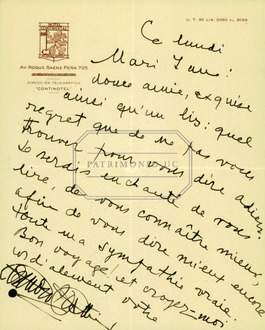 U. T. 35 LIB. 3080 AL 3089
HOTEL
AV. ROQUE SAENZ PEÑA 725
DIRECCIÓN TELEGRÁFICA
"CONTINOTEL"
Ce lundi
douce amie, exquise
ainsi qu'un lis; quel
regret que de ne pas vous
trouver pour vous dire adieu.
Je serais enchanté de vous
lire, de vous connaître mieux,
afin de vous dire mieux encore
toute ma sympathie vraie.
Bon voyage! et croyez-moi
cordialement vôtre
PATRIMONIO UC